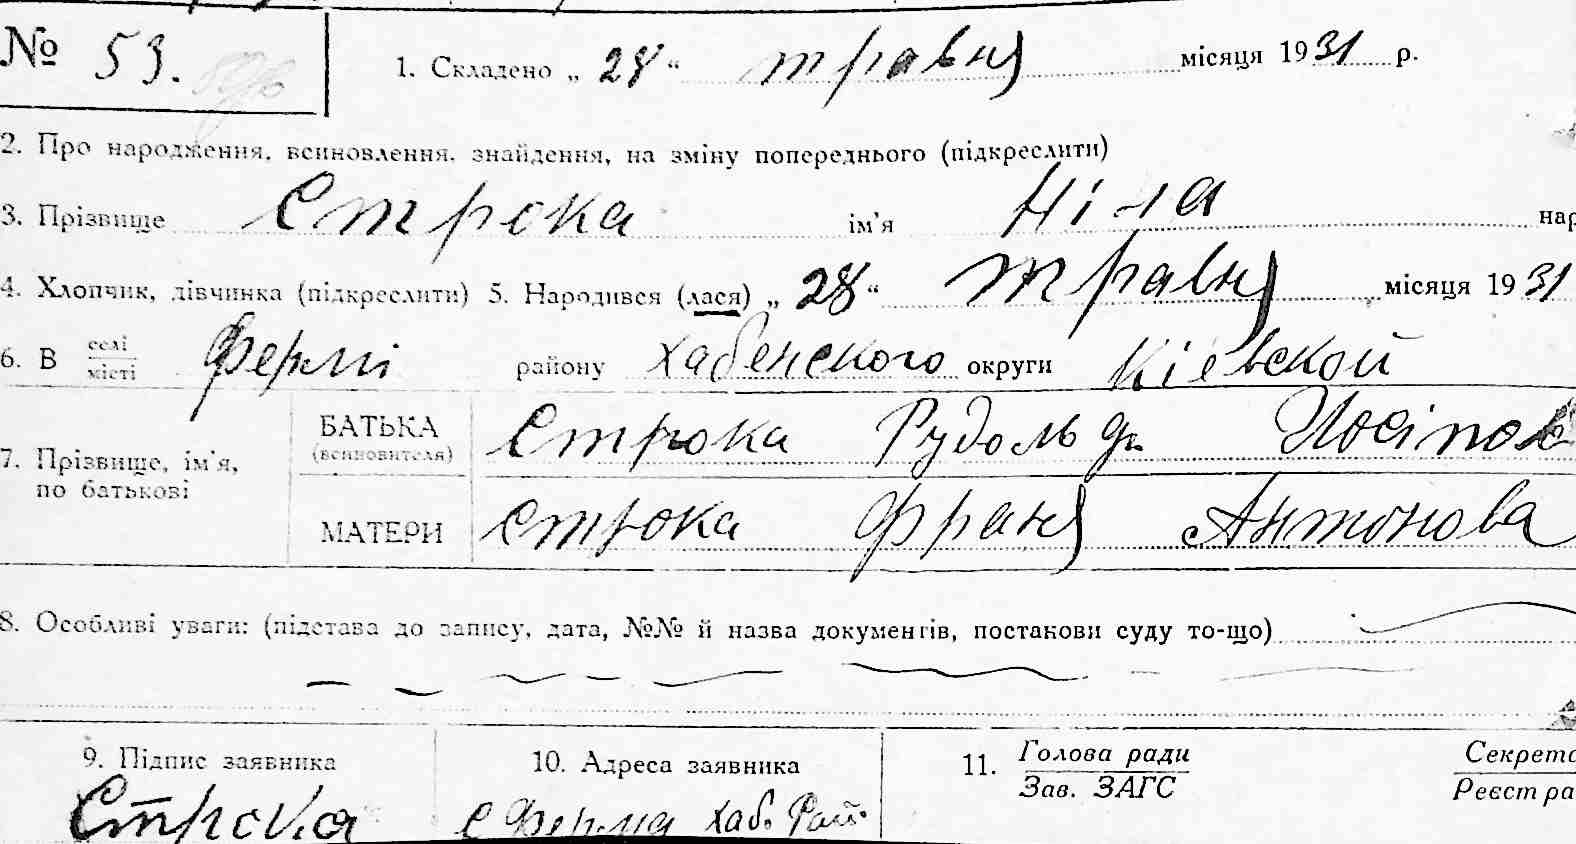 № 53.
1. Складено „ 28 “ травня місяця 1931 р.
2. Про народження, всиновлення, знайдення, на зміну попереднього (підкреслити)
3. Прізвище Строка ім’я Ніна нар
4. Хлопчик, дівчинка (підкреслити) 5. Народився (лася) „ 28 “ травня місяця 1931
6. В селі місті Фермі району Хабенского округи Кіевской
7. Прізвище, ім’я, по батькові
БАТЬКА (всиновителя) Строка Рудольф Иосіпов
МАТЕРИ Строка Франя Антонова
8. Особливі уваги: (підстава до запису, дата, №№ й назва документів, постакови суду то-що)
9. Підпис заявника 10. Адреса заявника 11. Голова ради Секрета
Зав. ЗАГС Реєстра
Строка с Ферма Хаб. Рай.